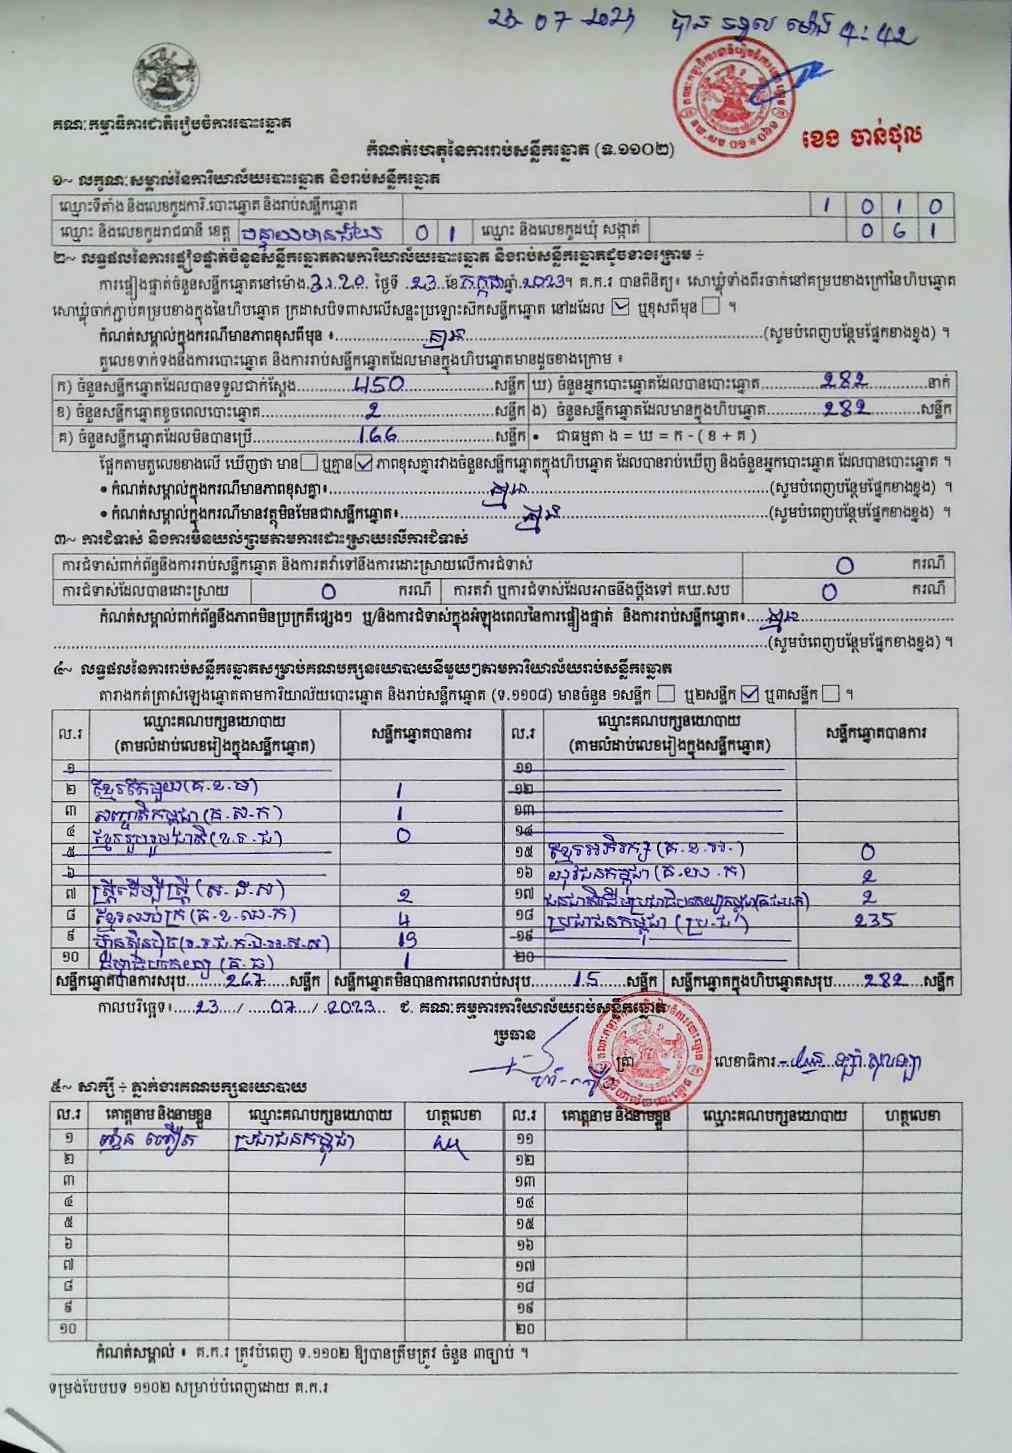 23 07 2023 បាន ទទួល ម៉ោង 4:42
គណៈកម្មាធិការជាតិរៀបចំការបោះឆ្នោត
ខេង ចាន់ថុល
កំណត់ហេតុនៃការរាប់សន្លឹកឆ្នោត (ទ.១១០២)
១~ លក្ខណៈសម្គាល់នៃការិយាល័យបោះឆ្នោត និងរាប់សន្លឹកឆ្នោត
ឈ្មោះទីតាំង និងលេខកូដការិ.បោះឆ្នោត និងរាប់សន្លឹកឆ្នោត 1 0 1 0
ឈ្មោះ និងលេខកូដរាជធានី ខេត្ត បន្ទាយមានជ័យ 0 1 ឈ្មោះ និងលេខកូដឃុំ សង្កាត់ 0 6 1
២~ លទ្ធផលនៃការផ្ទៀងផ្ទាត់ចំនួនសន្លឹកឆ្នោតតាមការិយាល័យបោះឆ្នោត និងរាប់សន្លឹកឆ្នោតដូចខាងក្រោម ÷
ការផ្ទៀងផ្ទាត់ចំនួនសន្លឹកឆ្នោតនៅម៉ោង 3:20 ថ្ងៃទី 23 ខែ កក្កដា ឆ្នាំ 2023។ គ.ក.រ បានពិនិត្យ៖ សោឃ្លុំទាំងពីរចាក់នៅគម្របខាងក្រៅនៃហិបឆ្នោត
សោឃ្លុំចាក់ភ្ជាប់គម្របខាងក្នុងនៃហិបឆ្នោត ក្រដាសបិទពាសលើសន្ទះប្រឡោះស៊កសន្លឹកឆ្នោត នៅដដែល ☑ ឬខុសពីមុន ☐ ។
កំណត់សម្គាល់ក្នុងករណីមានភាពខុសពីមុន ៖ គ្មាន (សូមបំពេញបន្ថែមផ្នែកខាងខ្នង) ។
តួលេខទាក់ទងនឹងការបោះឆ្នោត និងការរាប់សន្លឹកឆ្នោតដែលមានក្នុងហិបឆ្នោតមានដូចខាងក្រោម ៖
ក) ចំនួនសន្លឹកឆ្នោតដែលបានទទួលជាក់ស្តែង 450 សន្លឹក ឃ) ចំនួនអ្នកបោះឆ្នោតដែលបានបោះឆ្នោត 282 នាក់
ខ) ចំនួនសន្លឹកឆ្នោតខូចពេលបោះឆ្នោត 2 សន្លឹក ង) ចំនួនសន្លឹកឆ្នោតដែលមានក្នុងហិបឆ្នោត 282 សន្លឹក
គ) ចំនួនសន្លឹកឆ្នោតដែលមិនបានប្រើ 166 សន្លឹក • ជាធម្មតា ង = ឃ = ក - ( ខ + គ )
ផ្អែកតាមតួលេខខាងលើ ឃើញថា មាន ☐ ឬគ្មាន ☑ ភាពខុសគ្នារវាងចំនួនសន្លឹកឆ្នោតក្នុងហិបឆ្នោត ដែលបានរាប់ឃើញ និងចំនួនអ្នកបោះឆ្នោត ដែលបានបោះឆ្នោត ។
• កំណត់សម្គាល់ក្នុងករណីមានភាពខុសគ្នា៖ គ្មាន (សូមបំពេញបន្ថែមផ្នែកខាងខ្នង) ។
• កំណត់សម្គាល់ក្នុងករណីមានវត្ថុមិនមែនជាសន្លឹកឆ្នោត៖ គ្មាន (សូមបំពេញបន្ថែមផ្នែកខាងខ្នង) ។
៣~ ការជំទាស់ និងការមិនយល់ព្រមតាមការដោះស្រាយលើការជំទាស់
ការជំទាស់ពាក់ព័ន្ធនឹងការរាប់សន្លឹកឆ្នោត និងការតវ៉ាទៅនឹងការដោះស្រាយលើការជំទាស់ 0 ករណី
ការជំទាស់ដែលបានដោះស្រាយ 0 ករណី ការតវ៉ា ឬការជំទាស់ដែលអាចនឹងប្តឹងទៅ គឃ.សប 0 ករណី
កំណត់សម្គាល់ពាក់ព័ន្ធនឹងភាពមិនប្រក្រតីផ្សេងៗ ឬ/និងការជំទាស់ក្នុងអំឡុងពេលនៃការផ្ទៀងផ្ទាត់ និងការរាប់សន្លឹកឆ្នោត៖ គ្មាន
(សូមបំពេញបន្ថែមផ្នែកខាងខ្នង) ។
៤~ លទ្ធផលនៃការរាប់សន្លឹកឆ្នោតសម្រាប់គណបក្សនយោបាយនីមួយៗតាមការិយាល័យរាប់សន្លឹកឆ្នោត
តារាងកត់ត្រាសំឡេងឆ្នោតតាមការិយាល័យបោះឆ្នោត និងរាប់សន្លឹកឆ្នោត (ទ.១១០៨) មានចំនួន ១សន្លឹក ☐ ឬ២សន្លឹក ☑ ឬ៣សន្លឹក ☐ ។
ល.រ ឈ្មោះគណបក្សនយោបាយ (តាមលំដាប់លេខរៀងក្នុងសន្លឹកឆ្នោត) សន្លឹកឆ្នោតបានការ ល.រ ឈ្មោះគណបក្សនយោបាយ (តាមលំដាប់លេខរៀងក្នុងសន្លឹកឆ្នោត) សន្លឹកឆ្នោតបានការ
១ ១១
២ ខ្មែរតែមួយ (គ.ខ.ម) 1 ១២
៣ សញ្ជាតិកម្ពុជា (គ.ស.ក) 1 ១៣
៤ ខ្មែររួបរួមជាតិ (ខ.រ.ជ) 0 ១៤
៥ ១៥ ខ្មែរអភិរក្ស (គ.ខ.អ.) 0
៦ ១៦ យុវជនកម្ពុជា (គ.យ.ក) 2
៧ ស្ត្រីដើម្បីស្ត្រី (ស.ដ.ស) 2 ១៧ ជនជាតិដើមប្រជាធិបតេយ្យកម្ពុជា 2
៨ ខ្មែរឈប់ក្រ (គ.ខ.ឈ.ក) 4 ១៨ ប្រជាជនកម្ពុជា (ប្រ.ជ) 235
៩ ហ៊្វុនស៊ិនប៉ិច 19 ១៩
១០ ធម្មាធិបតេយ្យ (គ.ធ) 1 ២០
សន្លឹកឆ្នោតបានការសរុប 267 សន្លឹក សន្លឹកឆ្នោតមិនបានការពេលរាប់សរុប 15 សន្លឹក សន្លឹកឆ្នោតក្នុងហិបឆ្នោតសរុប 282 សន្លឹក
កាលបរិច្ឆេទ៖ 23 / 07 / 2023 ជ. គណៈកម្មការការិយាល័យរាប់សន្លឹកឆ្នោត
ប្រធាន
ត្រា លេខាធិការ
៥~ សាក្សី ÷ ភ្នាក់ងារគណបក្សនយោបាយ
ល.រ គោត្តនាម និងនាមខ្លួន ឈ្មោះគណបក្សនយោបាយ ហត្ថលេខា ល.រ គោត្តនាម និងនាមខ្លួន ឈ្មោះគណបក្សនយោបាយ ហត្ថលេខា
១ ប្រជាជនកម្ពុជា ១១
២ ១២
៣ ១៣
៤ ១៤
៥ ១៥
៦ ១៦
៧ ១៧
៨ ១៨
៩ ១៩
១០ ២០
កំណត់សម្គាល់ ៖ គ.ក.រ ត្រូវបំពេញ ទ.១១០២ ឱ្យបានត្រឹមត្រូវ ចំនួន ៣ច្បាប់ ។
ទម្រង់បែបបទ ១១០២ សម្រាប់បំពេញដោយ គ.ក.រ